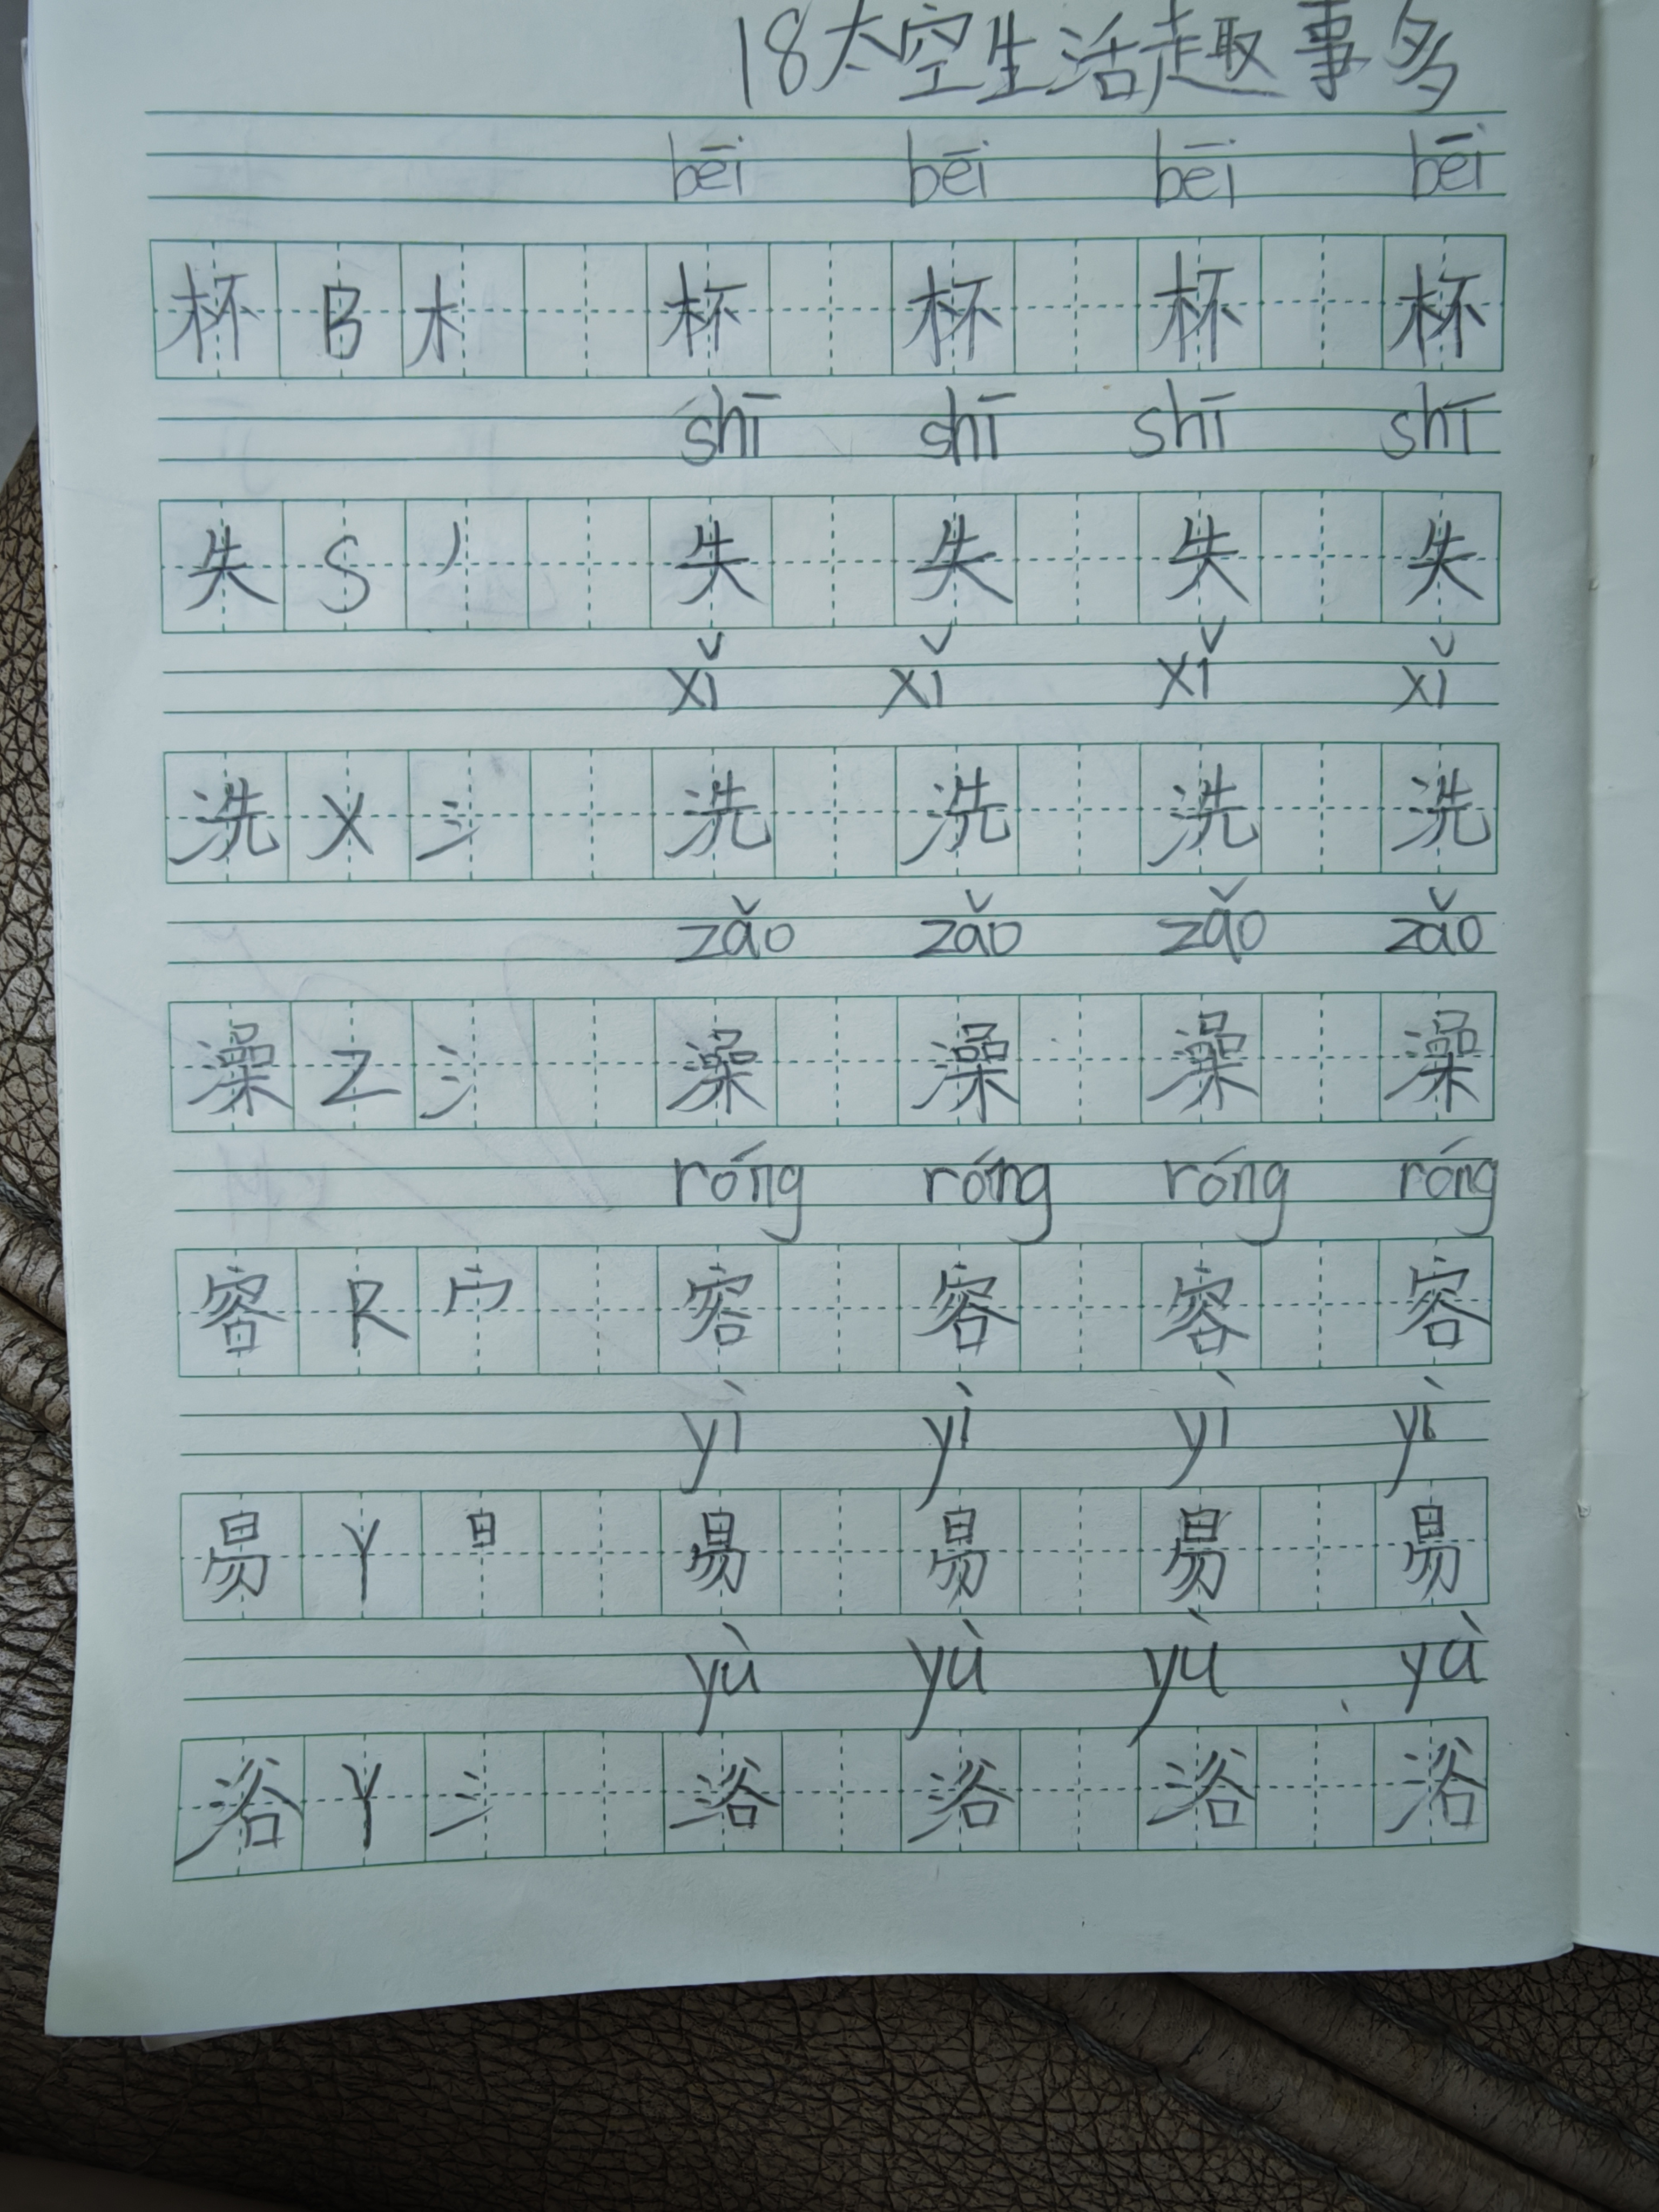 18太空生活趣事多
bēi bēi bēi bēi
杯 B 木 杯 杯 杯 杯
shī shī shī shī
失 S 丿 失 失 失 失
xǐ xǐ xǐ xǐ
洗 X 氵 洗 洗 洗 洗
zǎo zǎo zǎo zǎo
澡 Z 氵 澡 澡 澡 澡
róng róng róng róng
容 R 宀 容 容 容 容
yì yì yì yì
易 Y 日 易 易 易 易
yù yù yù yù
浴 Y 氵 浴 浴 浴 浴